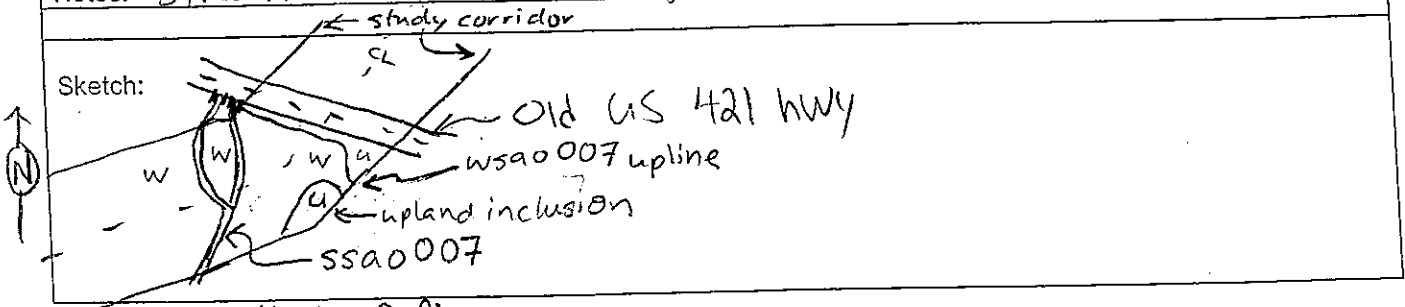 study corridor
Sketch:
CL
Old US 421 hwy
W W W u
wsao007 upline
N
u
upland inclusion
ssao007